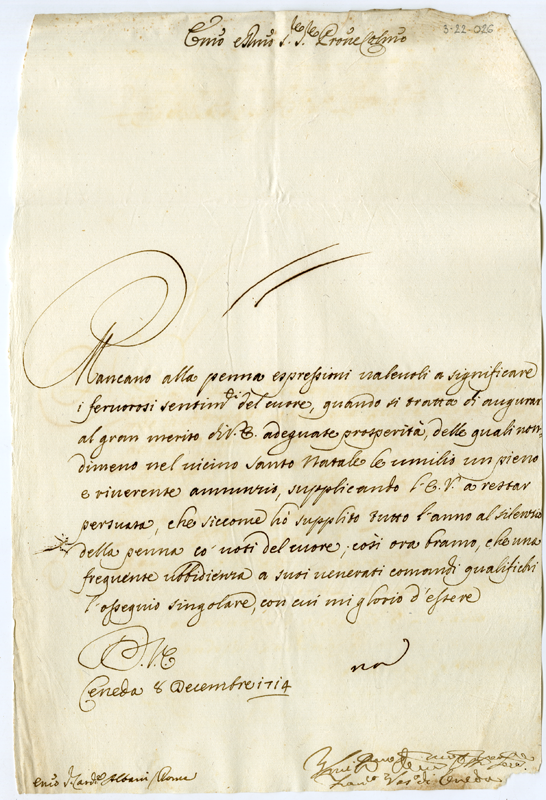 Emo e Rmo Sig.re Sig.re Prone Colmo
3-22-026
Mancano alla penna espressioni ualeuoli a significare
i feruorosi sentim.ti del cuore, quando si tratta di augurar
al gran merito di V. E. adeguate prosperità, delle quali non-
dimeno nel uicino Santo Natale le umilio un pieno
e riuerente annunzio, supplicando l'E. V. a restar
persuasa, che siccome hò supplito tutto l'anno al silenzio
della penna co' uoti del cuore, così ora bramo, che una
frequente ubbidienza a suoi uenerati comandi qualifichi
l'ossequio singolare, con cui mi glorio d'essere
D. V. E.
Ceneda 8 Decembre 1714
Emo S.r Card. Albani Roma
Fran.co Vesc.o di Ceneda